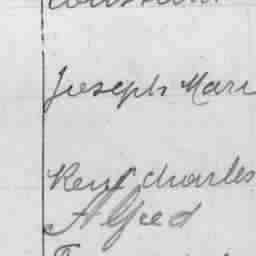 Joseph Mari
René Charles
Alfred